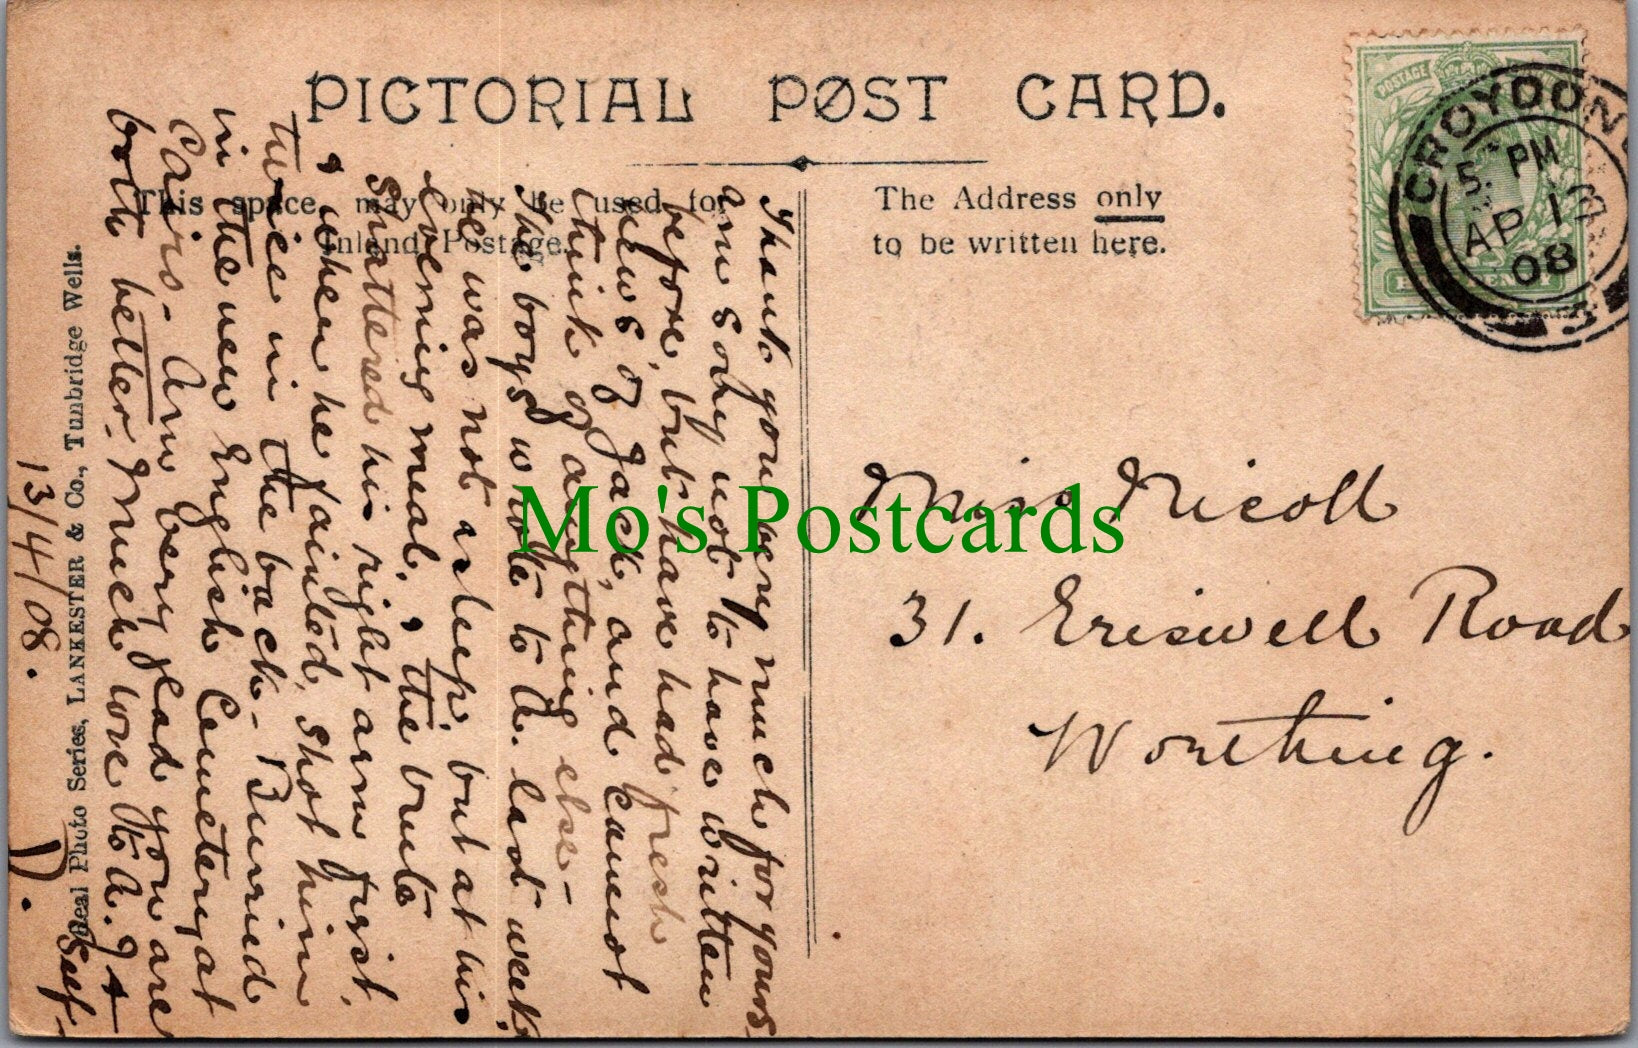 PICTORIAL POST CARD.
This space may only be used for
Inland Postage.
The Address only
to be written here.
POSTAGE
CROYDON
5. PM
AP 1
08
Thank you very much for yours.
Am sorry not to have written
before, but have had fresh
news of Jack, and cannot
think of anything else -
The boys wrote to A. last week
he was not asleep, but at his
evening meal, & the brute
shattered his right arm first,
& when he fainted, shot him
twice in the back - Buried
in the new English Cemetery at
Cairo - Am very glad you are
both better. Much love to A.
Self
13/4/08.
D.
Real Photo Series, LANKESTER & Co., Tunbridge Wells.
Miss Nicoll
31. Eriswell Road
Worthing.
Mo's Postcards